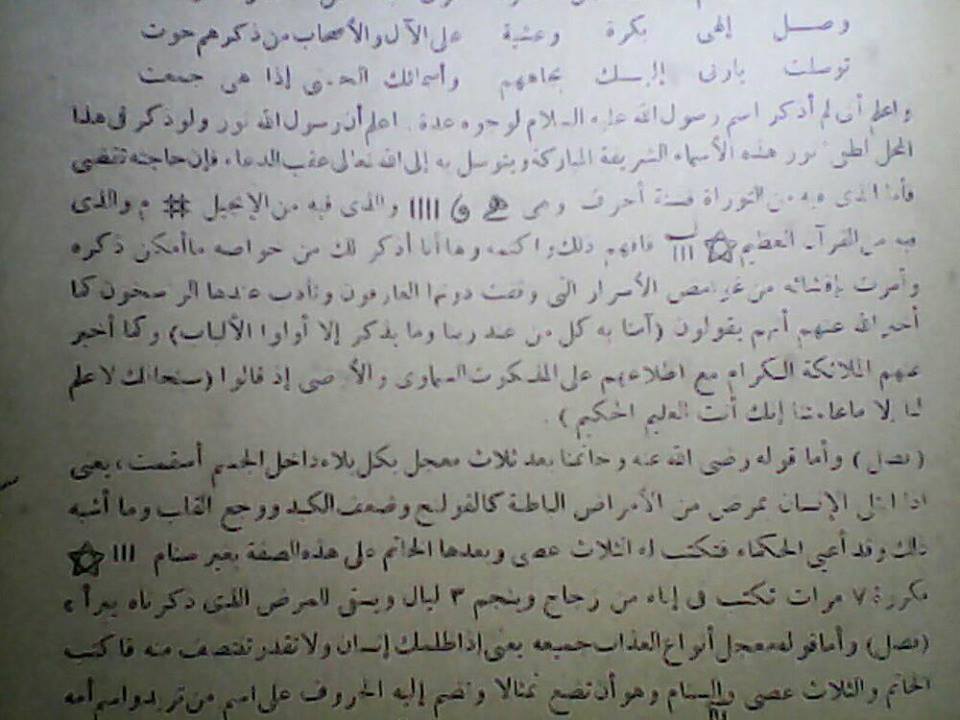 وصل إلهى بكرة وعشية على الآل والأصحاب من ذكرهم حوت
توسلت ياربى إليك بجاههم وأسمائك الحسنى إذا هى جمعت
واعلم أنى لم أذكر اسم رسول الله عليه السلام لوجوه عدة. اعلم أن رسول الله نور ولو ذكر فى هذا
المحل نور هذه الأسماء الشريفة المباركة ويتوسل به إلى الله تعالى عقب الدعاء فإن حاجته تقضى
فأما الذى فيه من التوراة فستة أحرف وهى IIII والذى فيه من الإنجيل # م والذى
فيه من القرآن العظيم ☆ III فافهم ذلك واكتمه وها أنا أذكر لك من خواصه ما أمكن ذكره
وأمرت بإفشائه من غوامض الأسرار التى وقفت دونها العارفون وتأدب عندها الراسخون كما
أخبر الله عنهم أنهم يقولون (آمنا به كل من عند ربنا وما يذكر إلا أولوا الألباب) وكما أخبر
عنهم الملائكة الكرام مع اطلاعهم على الملكوت السماوى والأرضى إذ قالوا (سبحانك لا علم
لنا إلا ما علمتنا إنك أنت العليم الحكيم).
(فصل) وأما قوله رضى الله عنه وخاتمنا بعد ثلاث معجل بكل بلاء داخل الجسم أسقمت، يعنى
اذا ابتلى الإنسان بمرض من الأمراض الباطنة كالقولنج وضعف الكبد ووجع القلب وما أشبه
ذلك وقد أعيى الحكماء فتكتب له الثلاث عصى وبعدها الخاتم على هذه الصفة بغير سنام III ☆
مكررة ٧ مرات تكتب فى إناء من زجاج وينجم ٣ ليال ويسقى للمرض الذى ذكرناه يبرأ
(فصل) وأما قوله معجل أنواع العذاب جميعه يعنى إذا ظلمك إنسان ولا تقدر تنتصف منه فاكتب
الخاتم والثلاث عصى والسنام وهو أن تصنع تمثالا وتضم إليه الحروف على اسم من تريد واسم أمه